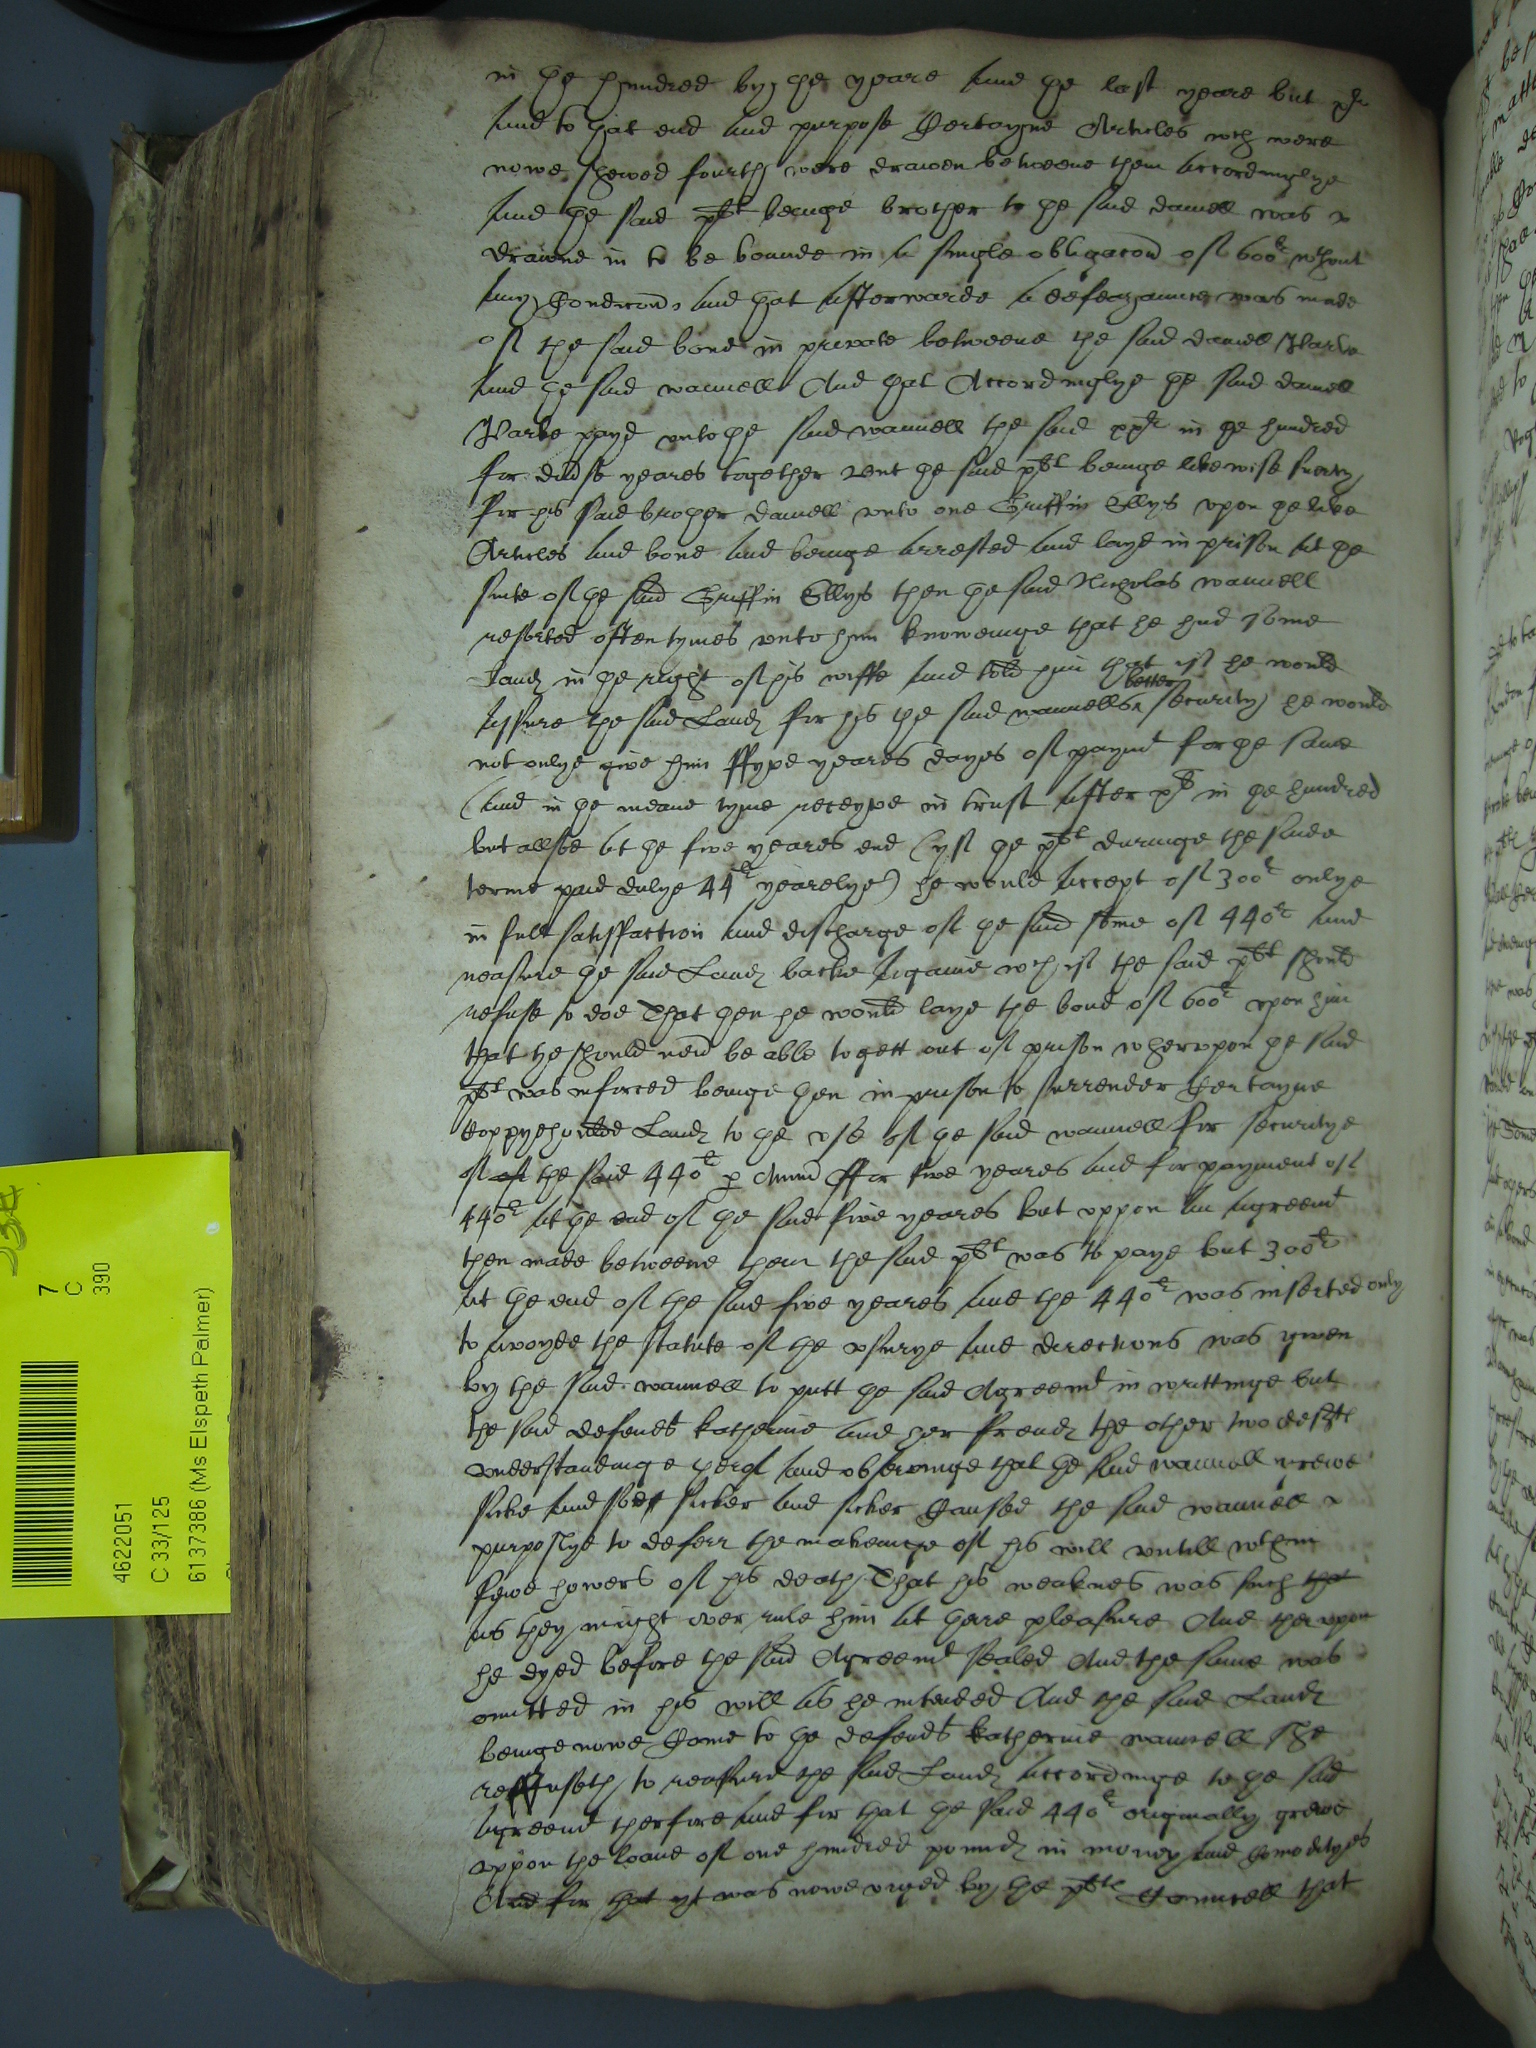 in the hundred by the yeare And the last yeare but xli
And to that end And purpose Certayne Articles wch were
nowe shewed fourth were drawen betweene them Accordinglye
And the said plt beinge brother to the said daniell was
drawne in to be bounde in A single obligacon of 600li wthout
Any Condicon, And that Afterwarde A defeazannce was made
of the said bond in private betweene the said daniell
And the said wannell And that Accordinglye the said daniell
payd unto the said wannell the said xxli in the hundred
for yeares together but the said plt beinge likewise suerty
for his said brother daniell unto one Griffin Ellys upon the like
Articles And bond And beinge Arrested And layd in prison At the
suite of the said Griffin Ellys then the said Nicholas wannell
resorted oftentymes unto him knoweinge that he had some
Land in the right of his wiffe And told him that if he would
Assure the said Land for his the said wannells better security he would
not onlye give him ffyve yeares dayes of paymt for the same
(And in the meane tyme receyve in trust After xli in the hundred
but allsoe At the five yeares end (yf the plt duringe the saide
terme paid dulye 44li yearelye) he would Accept of 300li onlye
in full satisffaction And discharge of the said some of 440li And
reassure the said Land backe Againe wch if the said plt should
refuse to doe That then he would laye the bond of 600li upon him
that he should nevr be able to gett out of prison wherupon the said
plt was inforced beinge then in prison to surrender Certayne
Coppyehould Land to the use of the said wannell for securitye
of of the said 440li p Annu ffor five yeares And for payment of
440li At the end of the said five yeares but uppon An Agreemt
then made betweene them the said plt was to paye but 300li
At the end of the said five yeares And the 440li was inserted only
to Avoyde the statute of the usurye And directions was given
by the said wannell to putt the said Agreemt in writtinge but
the said defendt katherine And her frends the other two deftes
understandinge therof And observinge that the said wannell grewe
sicke And sicker And sicker Caused the said wannell
purposlye to deferr the makeinge of his will untill wthin
fewe howers of his death That his weaknes was such that
as they might over rule him At there pleasure And therupon
he dyed before the said Agreemt sealed And the same was
omitted in his will As he intended And the said Land
beinge nowe Come to the defendt katherine wannell she
reffuseth to reassure the said Land Accordinge to the said
Agreemt therfore And for that the said 440li originally grewe
uppon the loane of one hundred pound in money And Comodityes
And for that yt was nowe urged by the pltes Counsell that
4622051
C 33/125
6137386 (Ms Elspeth Palmer)
7
C
390